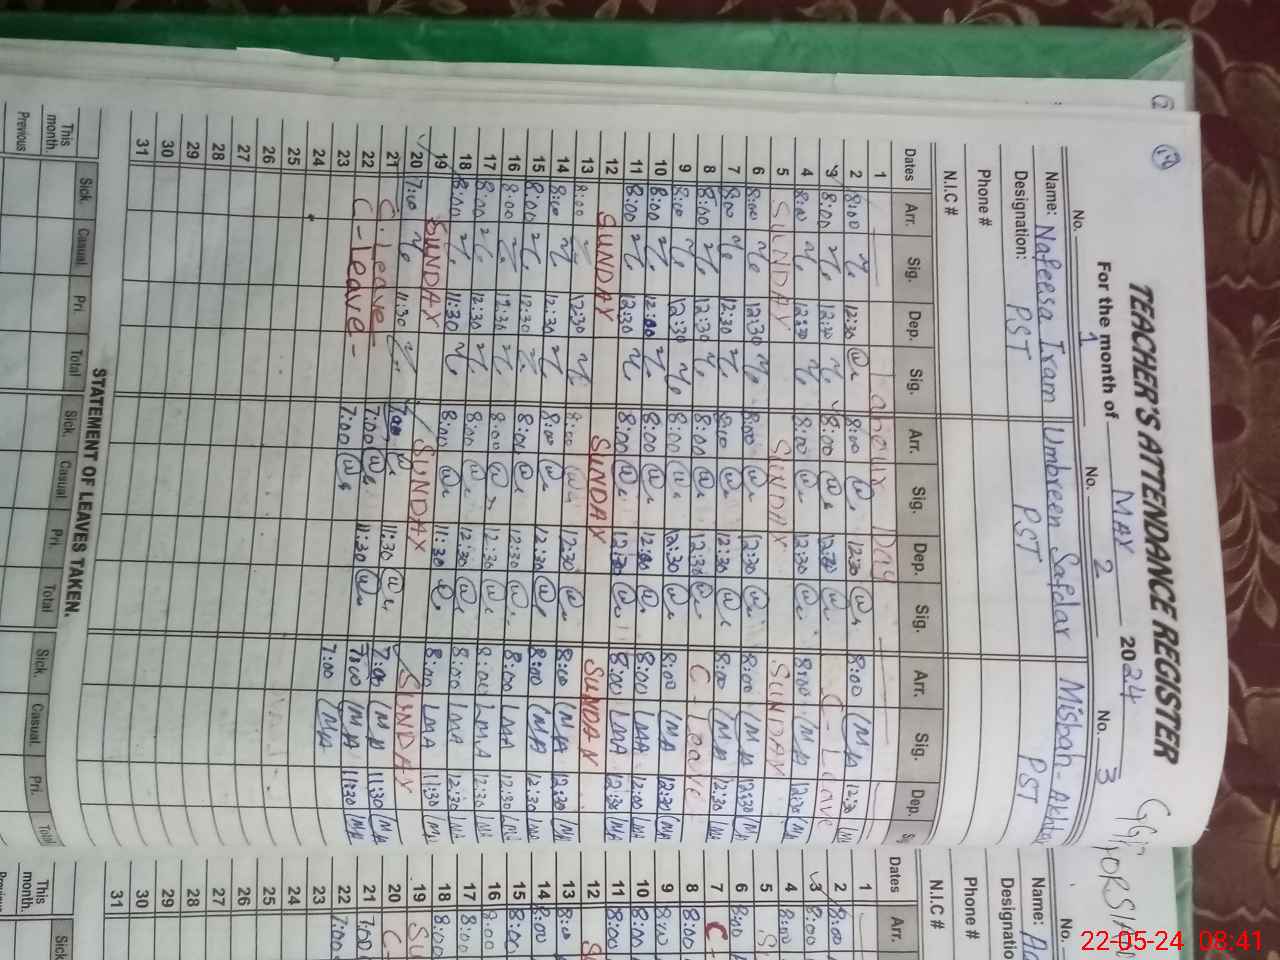 TEACHER'S ATTENDANCE REGISTER
For the month of MAY 2024
No. 1 No. 2 No. 3
Name: Nafeesa Iram Umbreen Safdar Misbah-Akhtar
Designation: PST PST PST
Phone #
N.I.C #
Dates Arr. Sig. Dep. Sig. Arr. Sig. Dep. Sig. Arr. Sig. Dep.
1 Labour Day
2 8:00 12:30 8:00 12:30 8:00 12:30
3 8:00 12:30 8:00 12:30 C-Leave
4 8:00 12:30 8:00 12:30 8:00 MA 12:30 MA
5 SUNDAY SUNDAY SUNDAY
6 8:00 12:30 8:00 12:30 8:00 MA 12:30 MA
7 8:00 12:30 8:00 12:30 8:00 MA 12:30 MA
8 8:00 12:30 8:00 12:30 C-Leave
9 8:00 12:30 8:00 12:30 8:00 MA 12:30 MA
10 8:00 12:00 8:00 12:00 8:00 MA 12:00 MA
11 8:00 12:30 8:00 12:30 8:00 MA 12:30 MA
12 SUNDAY SUNDAY SUNDAY
13 8:00 12:30 8:00 12:30 8:00 MA 12:30 MA
14 8:00 12:30 8:00 12:30 8:00 MA 12:30
15 8:00 12:30 8:00 12:30 8:00 MA 12:30
16 8:00 12:30 8:00 12:30 8:00 MA 12:30
17 8:00 12:30 8:00 12:30 8:00 MA 12:30
18 8:00 11:30 8:00 11:30 8:00 MA 11:30 MA
19 SUNDAY SUNDAY SUNDAY
20 7:00 11:30 7:00 11:30 7:00 MA 11:30 MA
21 C-Leave 7:00 11:30 7:00 MA 11:30 MA
22 C-Leave- 7:00 7:00 MA
23
24
25
26
27
28
29
30
31
STATEMENT OF LEAVES TAKEN.
Sick Casual Pri Total Sick. Casual Pri. Total Sick. Casual. Pri. Total
This month.
Previous
No.
Name:
Designatio
Phone #
N.I.C #
Dates Arr.
1
2 8:00
3 8:00
4 8:00
5 S
6 8:00
7 C
8 8:00
9 8:00
10 8:00
11 8:00
12 S
13 8:00
14 8:00
15 8:00
16 8:00
17 8:00
18 8:00
19 SU
20 C-
21 7:00
22 7:00
23
24
25
26
27
28
29
30
31
This month.
Previous
Sick
22-05-24 08:41